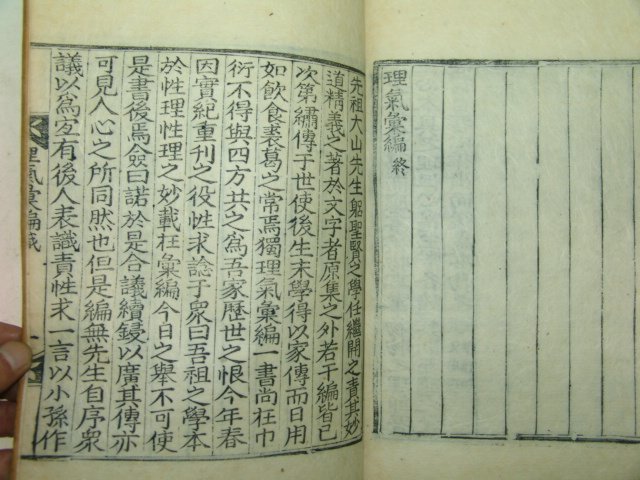 理氣彙編 終
先祖大山先生躳聖賢之學任繼開之責其妙
道精義之著於文字者原集之外若干編皆已
次第繡傳于世使後生末學得以家傳而日用
如飮食裘葛之常焉獨理氣彙編一書尙在巾
衍不得與四方共之爲吾家歷世之恨今年春
因實紀重刊之役性求諗于衆曰吾祖之學本
於性理性理之妙載在彙編今日之擧不可使
是書後焉僉曰諾於是合議續鋟以廣其傳亦
可見人心之所同然也但是編無先生自序衆
議以爲宜有後人表識責性求一言以小孫作
理氣彙編識